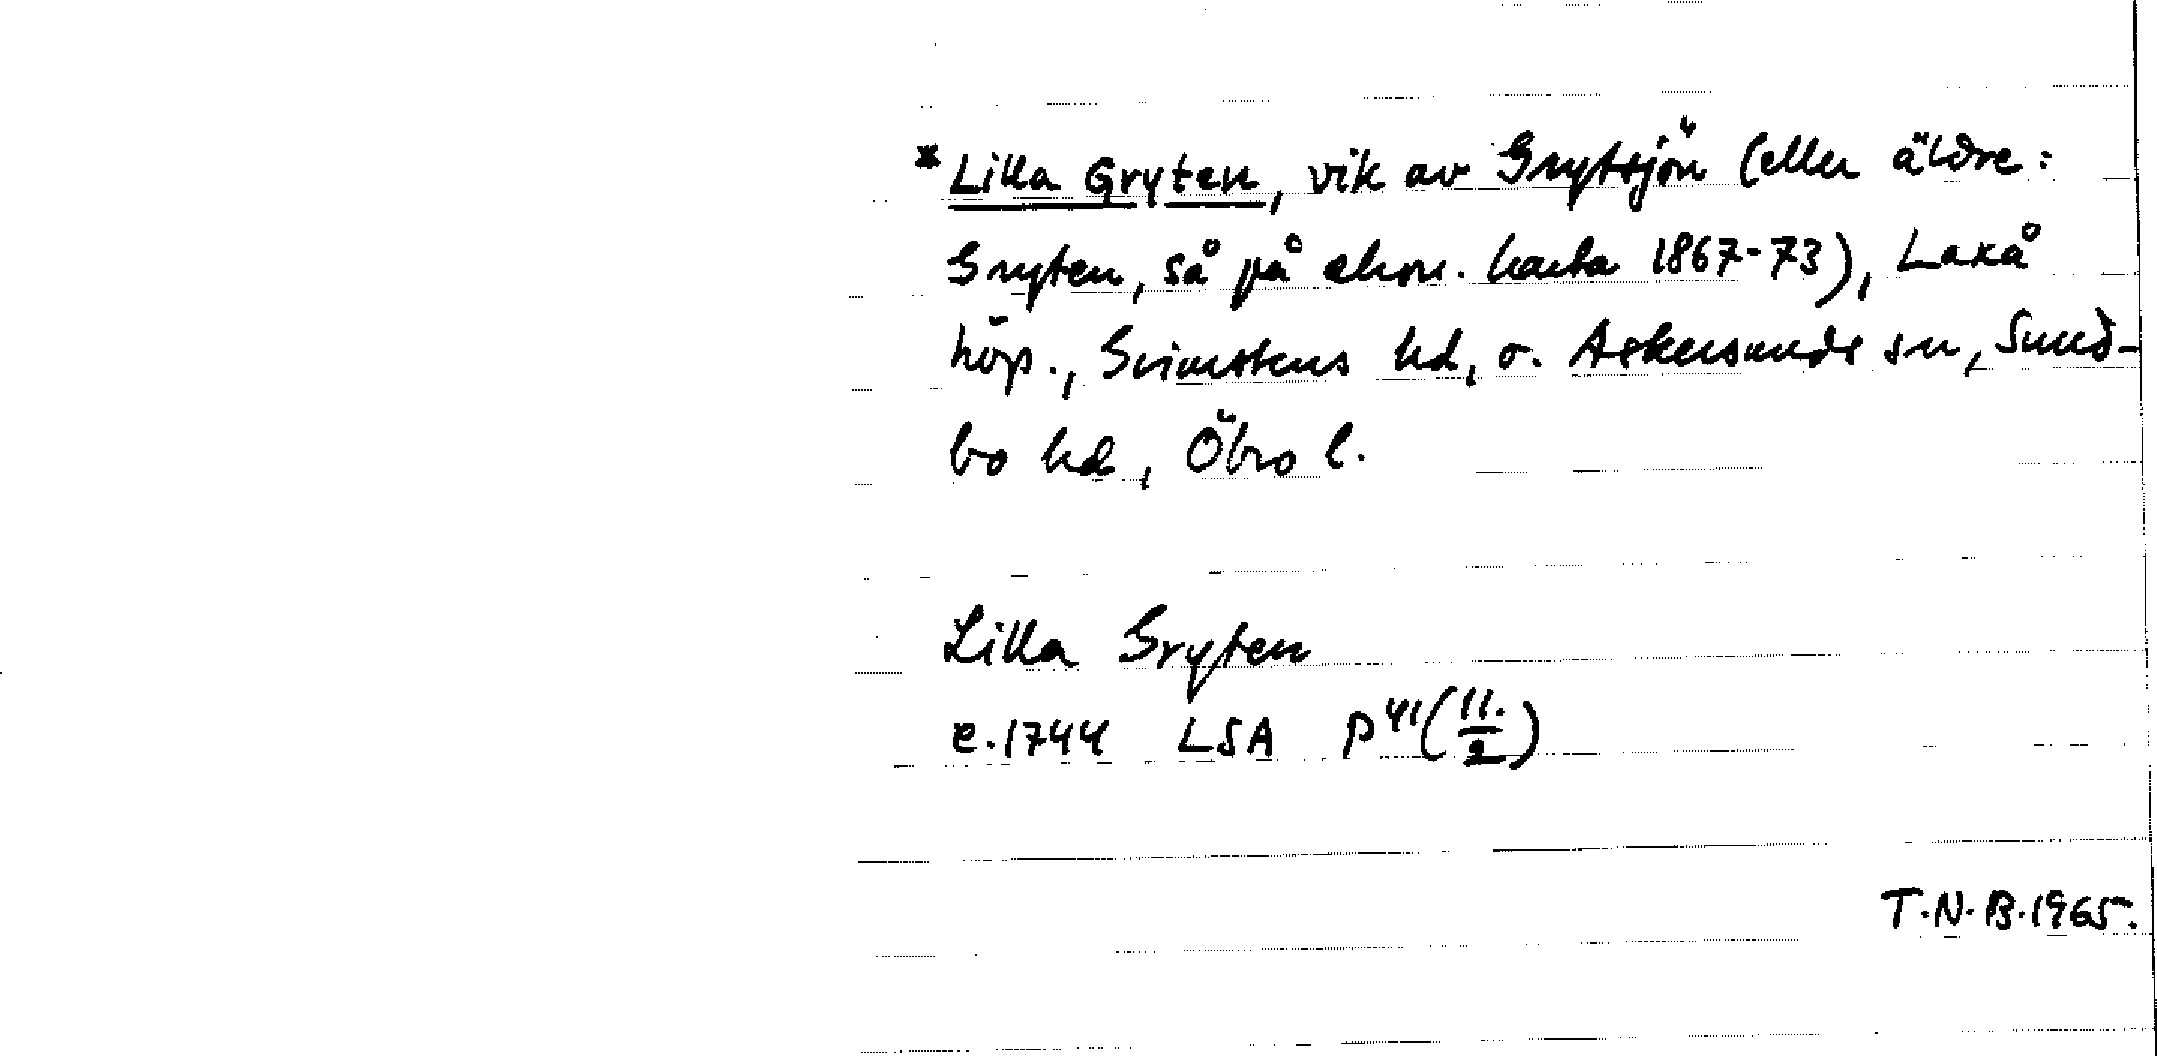 * Lilla Gryten, vik av Grytsjön (eller äldre:
Gryten, så på ekon. karta 1867-73), Laxå
köp., Grimstens hd, o. Askersunds sn, Sund-
bo hd, Öbro l.
Lilla Gryten
e. 1744 LSA P 41 (11./2)
T.N.B. 1965.